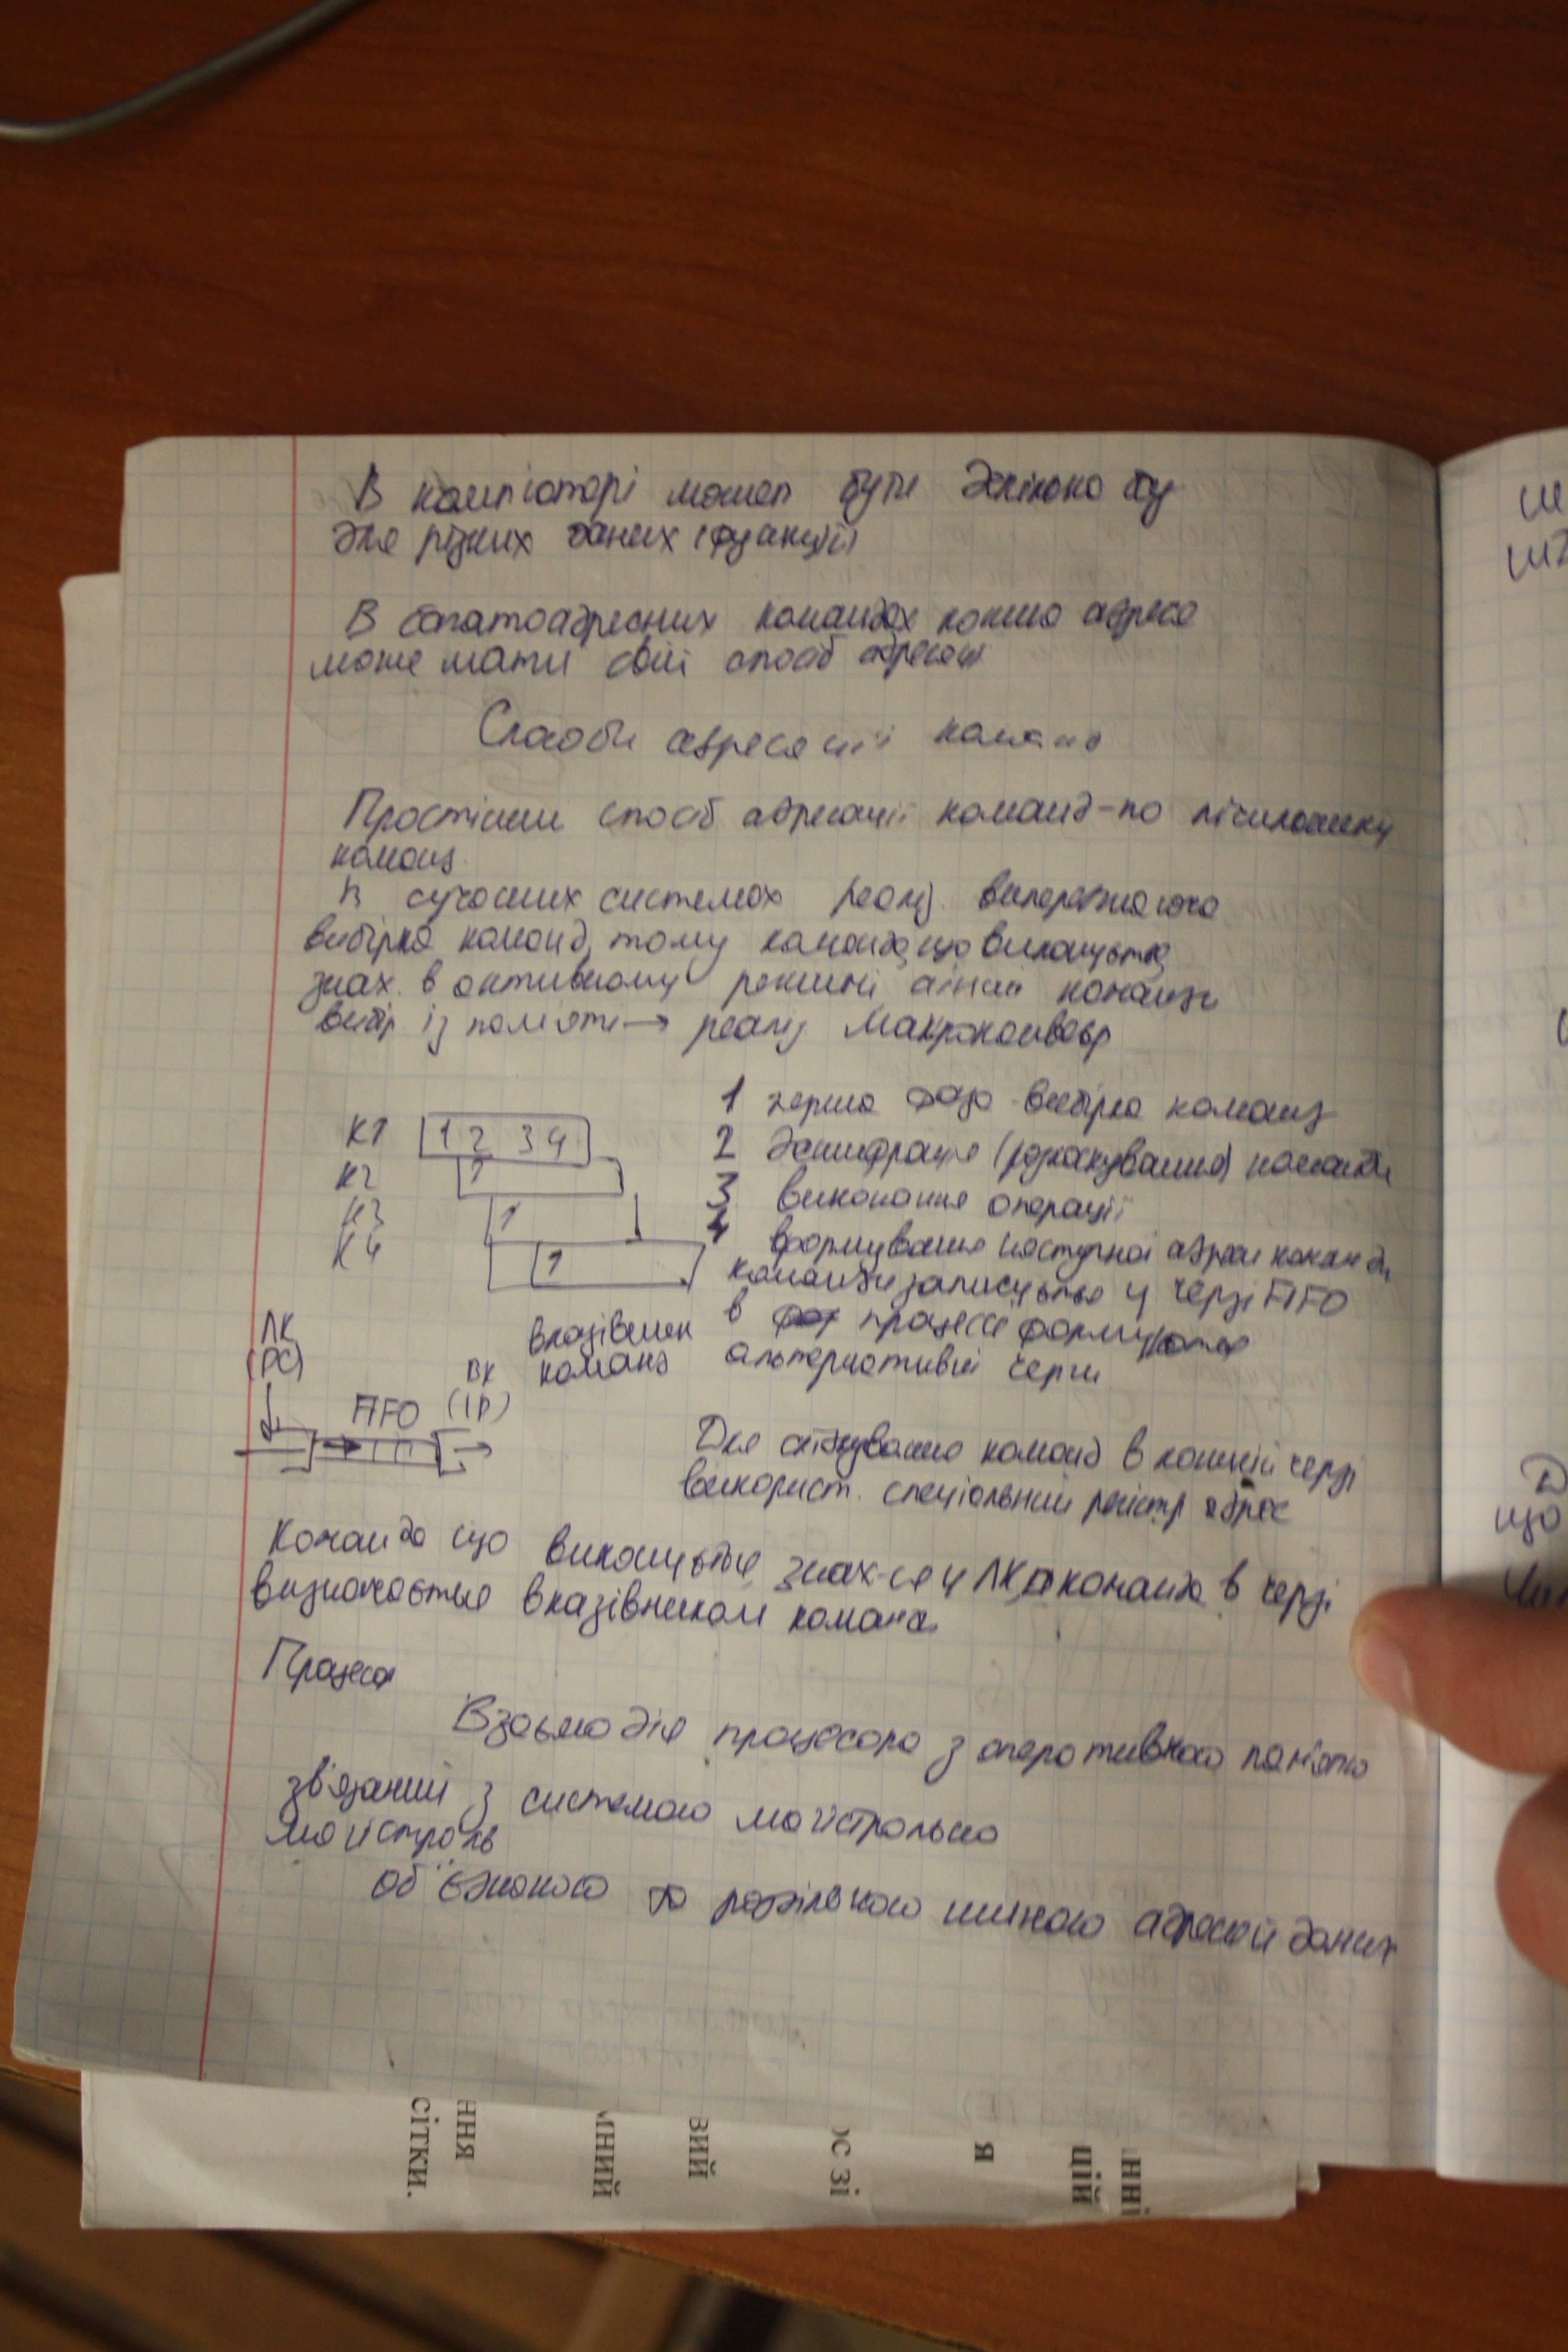 В комп'юторі может бути декілько
для різних даних (функцій)
В багатоадресних командах кожна адреса
може мати свій спосіб адресації
Способи адресації команд
Простіший спосіб адресації команд - по лічильнику
команд.
В сучасних системах реаліз. випереджаюча
вибірка команд, тому команда, що виконується
знах. в активному режимі команди
вибір із пам'яті → реаліз Макроконвеєр
К1 1 2 3 4
К2 1
К3 1
К4 1
1 перша фаза - вибірка команд
2 дешифрація (розкодування) команди
3 виконання операції
4 формування наступної адреси команди
команди записуються у черзі FIFO
в процесі формуються
альтернативні черги
ЛК
(PC)
FIFO
ВК
(IP)
вказівник
команд
Для слідкування команд в кожній черзі
використ. спеціальний регістр адрес
Команда що виконується знах-ся у ЛК, а команда в черзі
визначається вказівником команд
Процесор
Взаємодія процесора з оперативною пам'яттю
зв'язаний з системою магістральною
магістраль
об'єднаною та роздільною шиною адреси й даних
ння
сітки.
мний
вий
ос зі
я
нні
цій
що